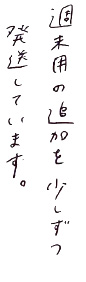 週末用の追加を少しずつ
発送しています。